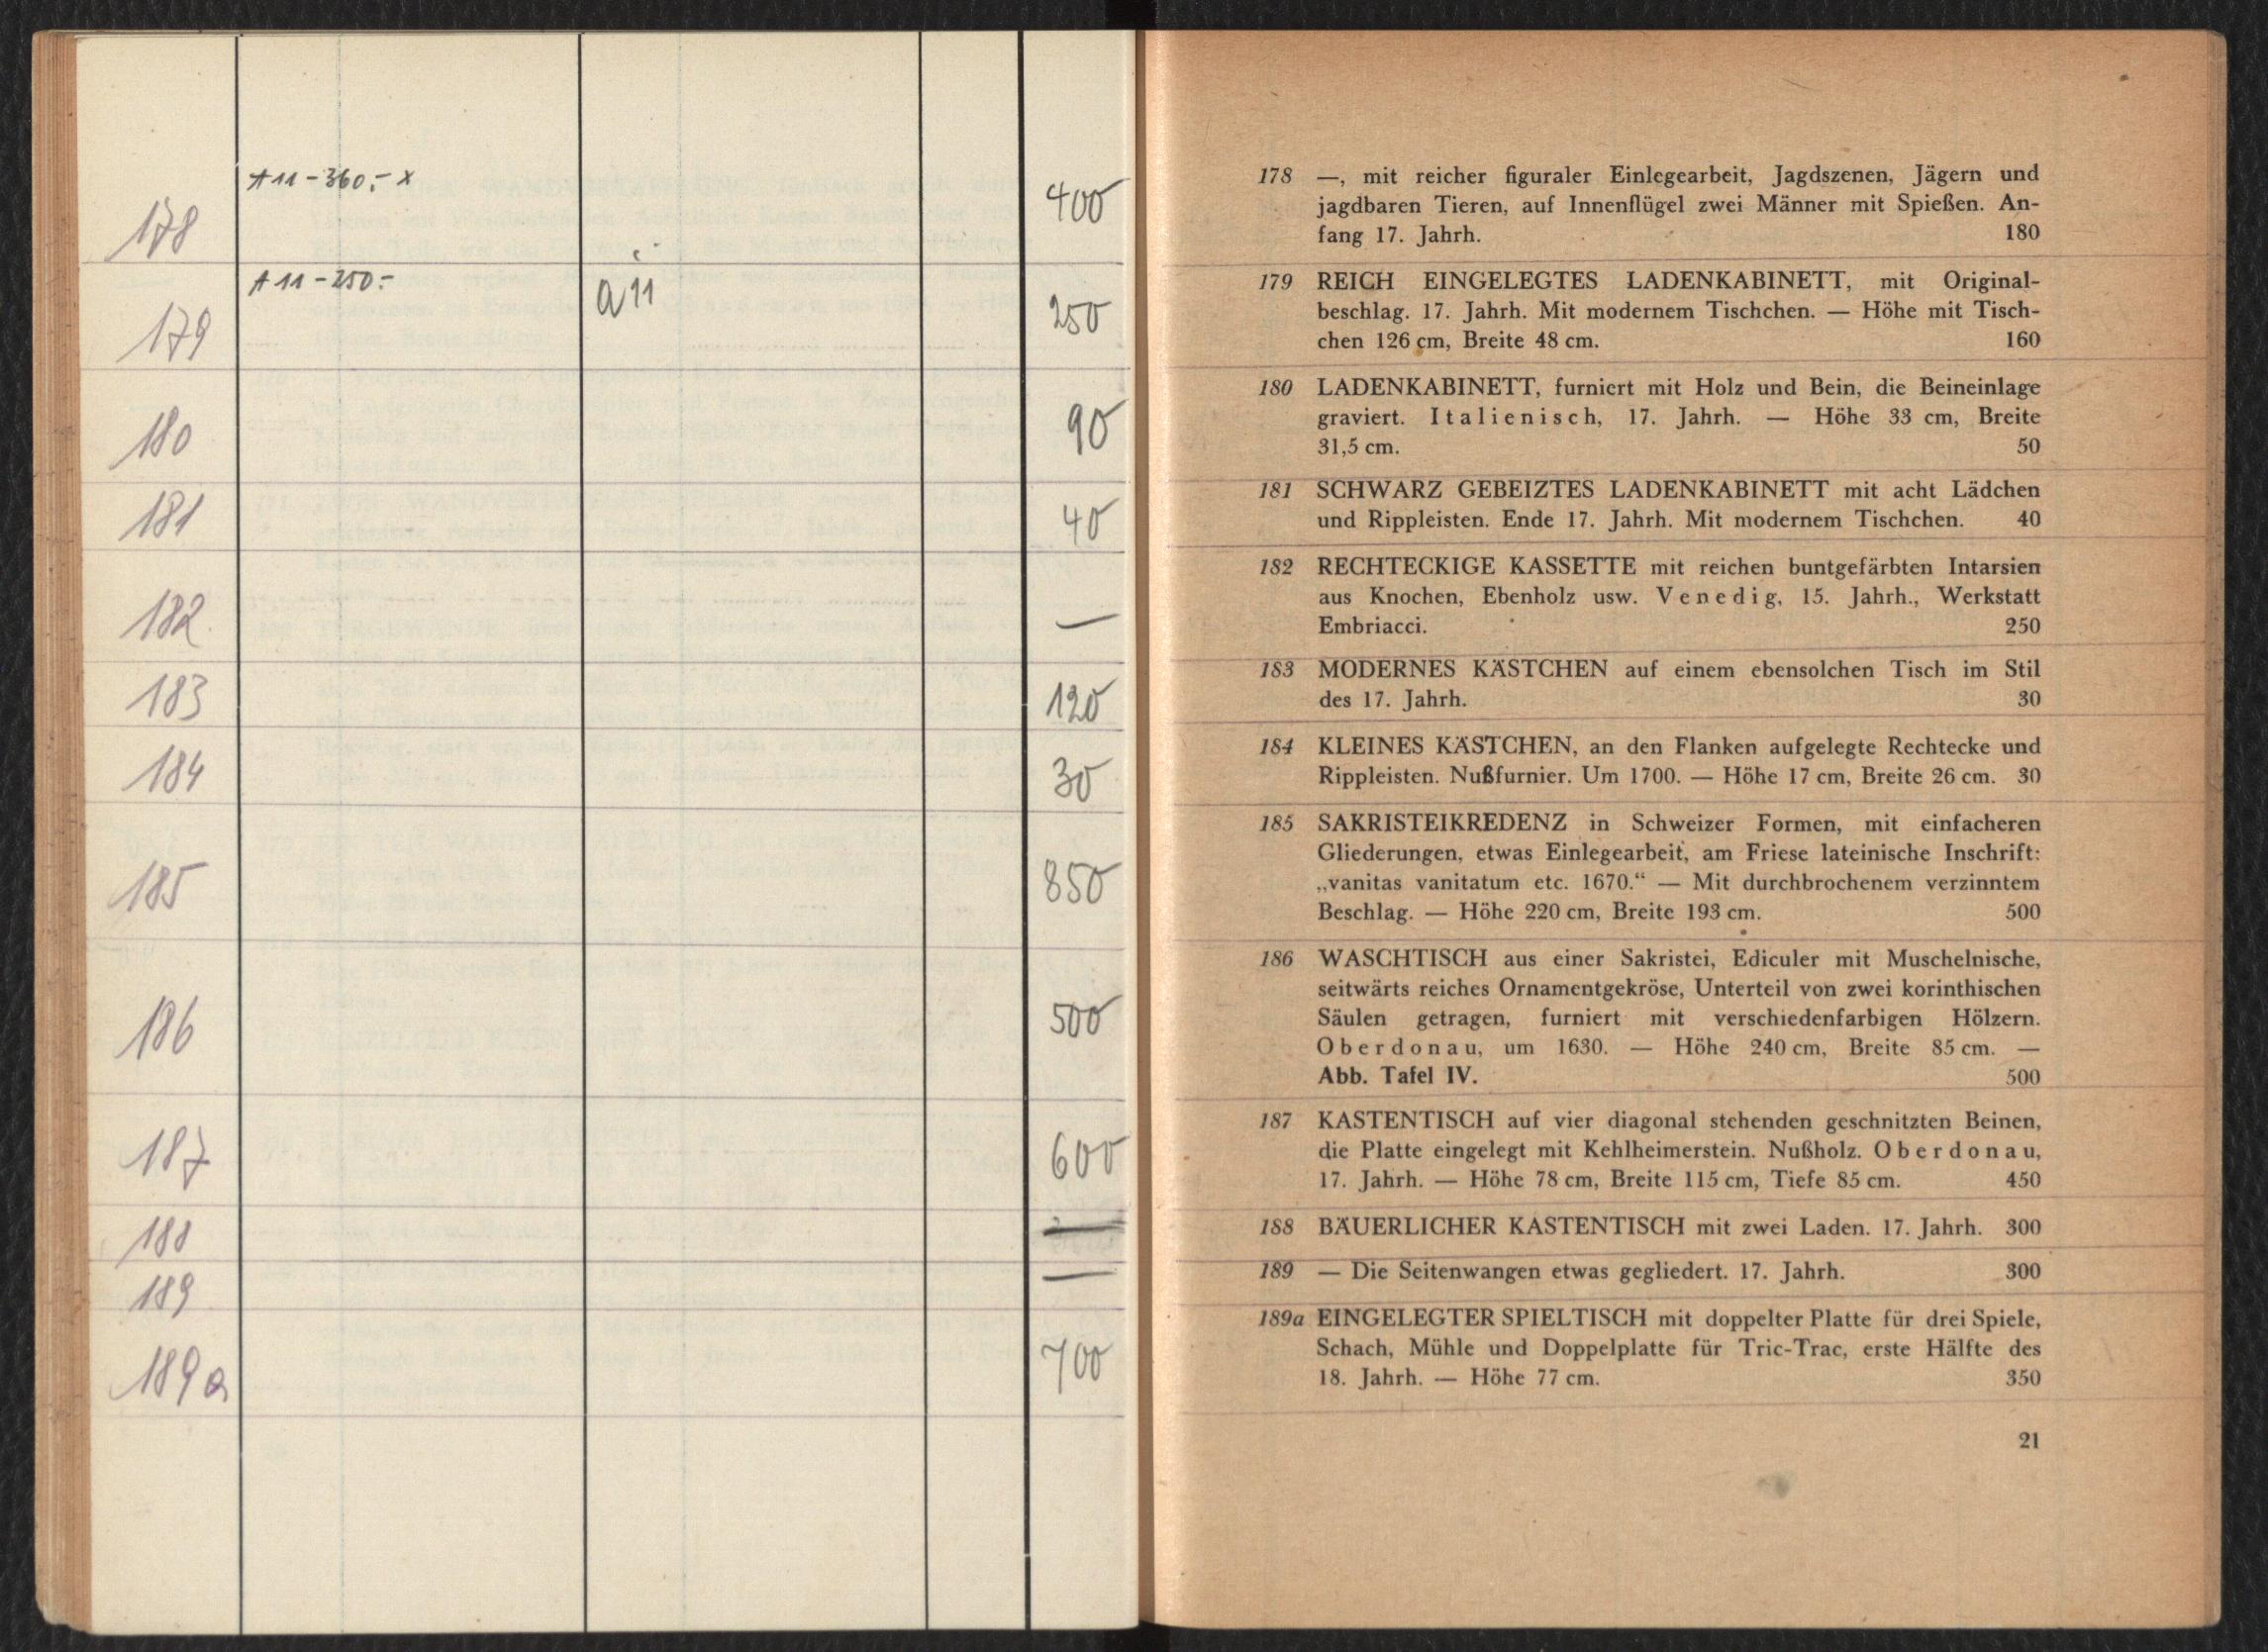 178
A 11 - 360.- x
400
179
A 11 - 250.-
a 11
250
180
90
181
40
182
—
183
120
184
30
185
850
186
500
187
600
188
—
189
—
189a
700
178 —, mit reicher figuraler Einlegearbeit, Jagdszenen, Jägern und
jagdbaren Tieren, auf Innenflügel zwei Männer mit Spießen. An-
fang 17. Jahrh. 180
179 REICH EINGELEGTES LADENKABINETT, mit Original-
beschlag. 17. Jahrh. Mit modernem Tischchen. — Höhe mit Tisch-
chen 126 cm, Breite 48 cm. 160
180 LADENKABINETT, furniert mit Holz und Bein, die Beineinlage
graviert. Italienisch, 17. Jahrh. — Höhe 33 cm, Breite
31,5 cm. 50
181 SCHWARZ GEBEIZTES LADENKABINETT mit acht Lädchen
und Rippleisten. Ende 17. Jahrh. Mit modernem Tischchen. 40
182 RECHTECKIGE KASSETTE mit reichen buntgefärbten Intarsien
aus Knochen, Ebenholz usw. Venedig, 15. Jahrh., Werkstatt
Embriacci. 250
183 MODERNES KÄSTCHEN auf einem ebensolchen Tisch im Stil
des 17. Jahrh. 30
184 KLEINES KÄSTCHEN, an den Flanken aufgelegte Rechtecke und
Rippleisten. Nußfurnier. Um 1700. — Höhe 17 cm, Breite 26 cm. 30
185 SAKRISTEIKREDENZ in Schweizer Formen, mit einfacheren
Gliederungen, etwas Einlegearbeit, am Friese lateinische Inschrift:
„vanitas vanitatum etc. 1670.“ — Mit durchbrochenem verzinntem
Beschlag. — Höhe 220 cm, Breite 193 cm. 500
186 WASCHTISCH aus einer Sakristei, Ediculer mit Muschelnische,
seitwärts reiches Ornamentgekröse, Unterteil von zwei korinthischen
Säulen getragen, furniert mit verschiedenfarbigen Hölzern.
Oberdonau, um 1630. — Höhe 240 cm, Breite 85 cm. —
Abb. Tafel IV. 500
187 KASTENTISCH auf vier diagonal stehenden geschnitzten Beinen,
die Platte eingelegt mit Kehlheimerstein. Nußholz. Oberdonau,
17. Jahrh. — Höhe 78 cm, Breite 115 cm, Tiefe 85 cm. 450
188 BÄUERLICHER KASTENTISCH mit zwei Laden. 17. Jahrh. 300
189 — Die Seitenwangen etwas gegliedert. 17. Jahrh. 300
189a EINGELEGTER SPIELTISCH mit doppelter Platte für drei Spiele,
Schach, Mühle und Doppelplatte für Tric-Trac, erste Hälfte des
18. Jahrh. — Höhe 77 cm. 350
21